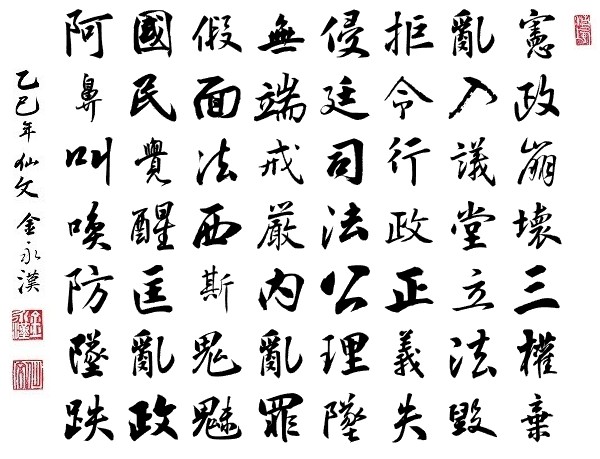 憲政崩壞三權棄
亂入議堂立法毀
拒令行政正義失
侵廷司法公理墜
無端戒嚴內亂罪
假面法西斯鬼魅
國民覺醒匡亂政
阿鼻叫喚防墜跌
乙巳年仙文金永漢